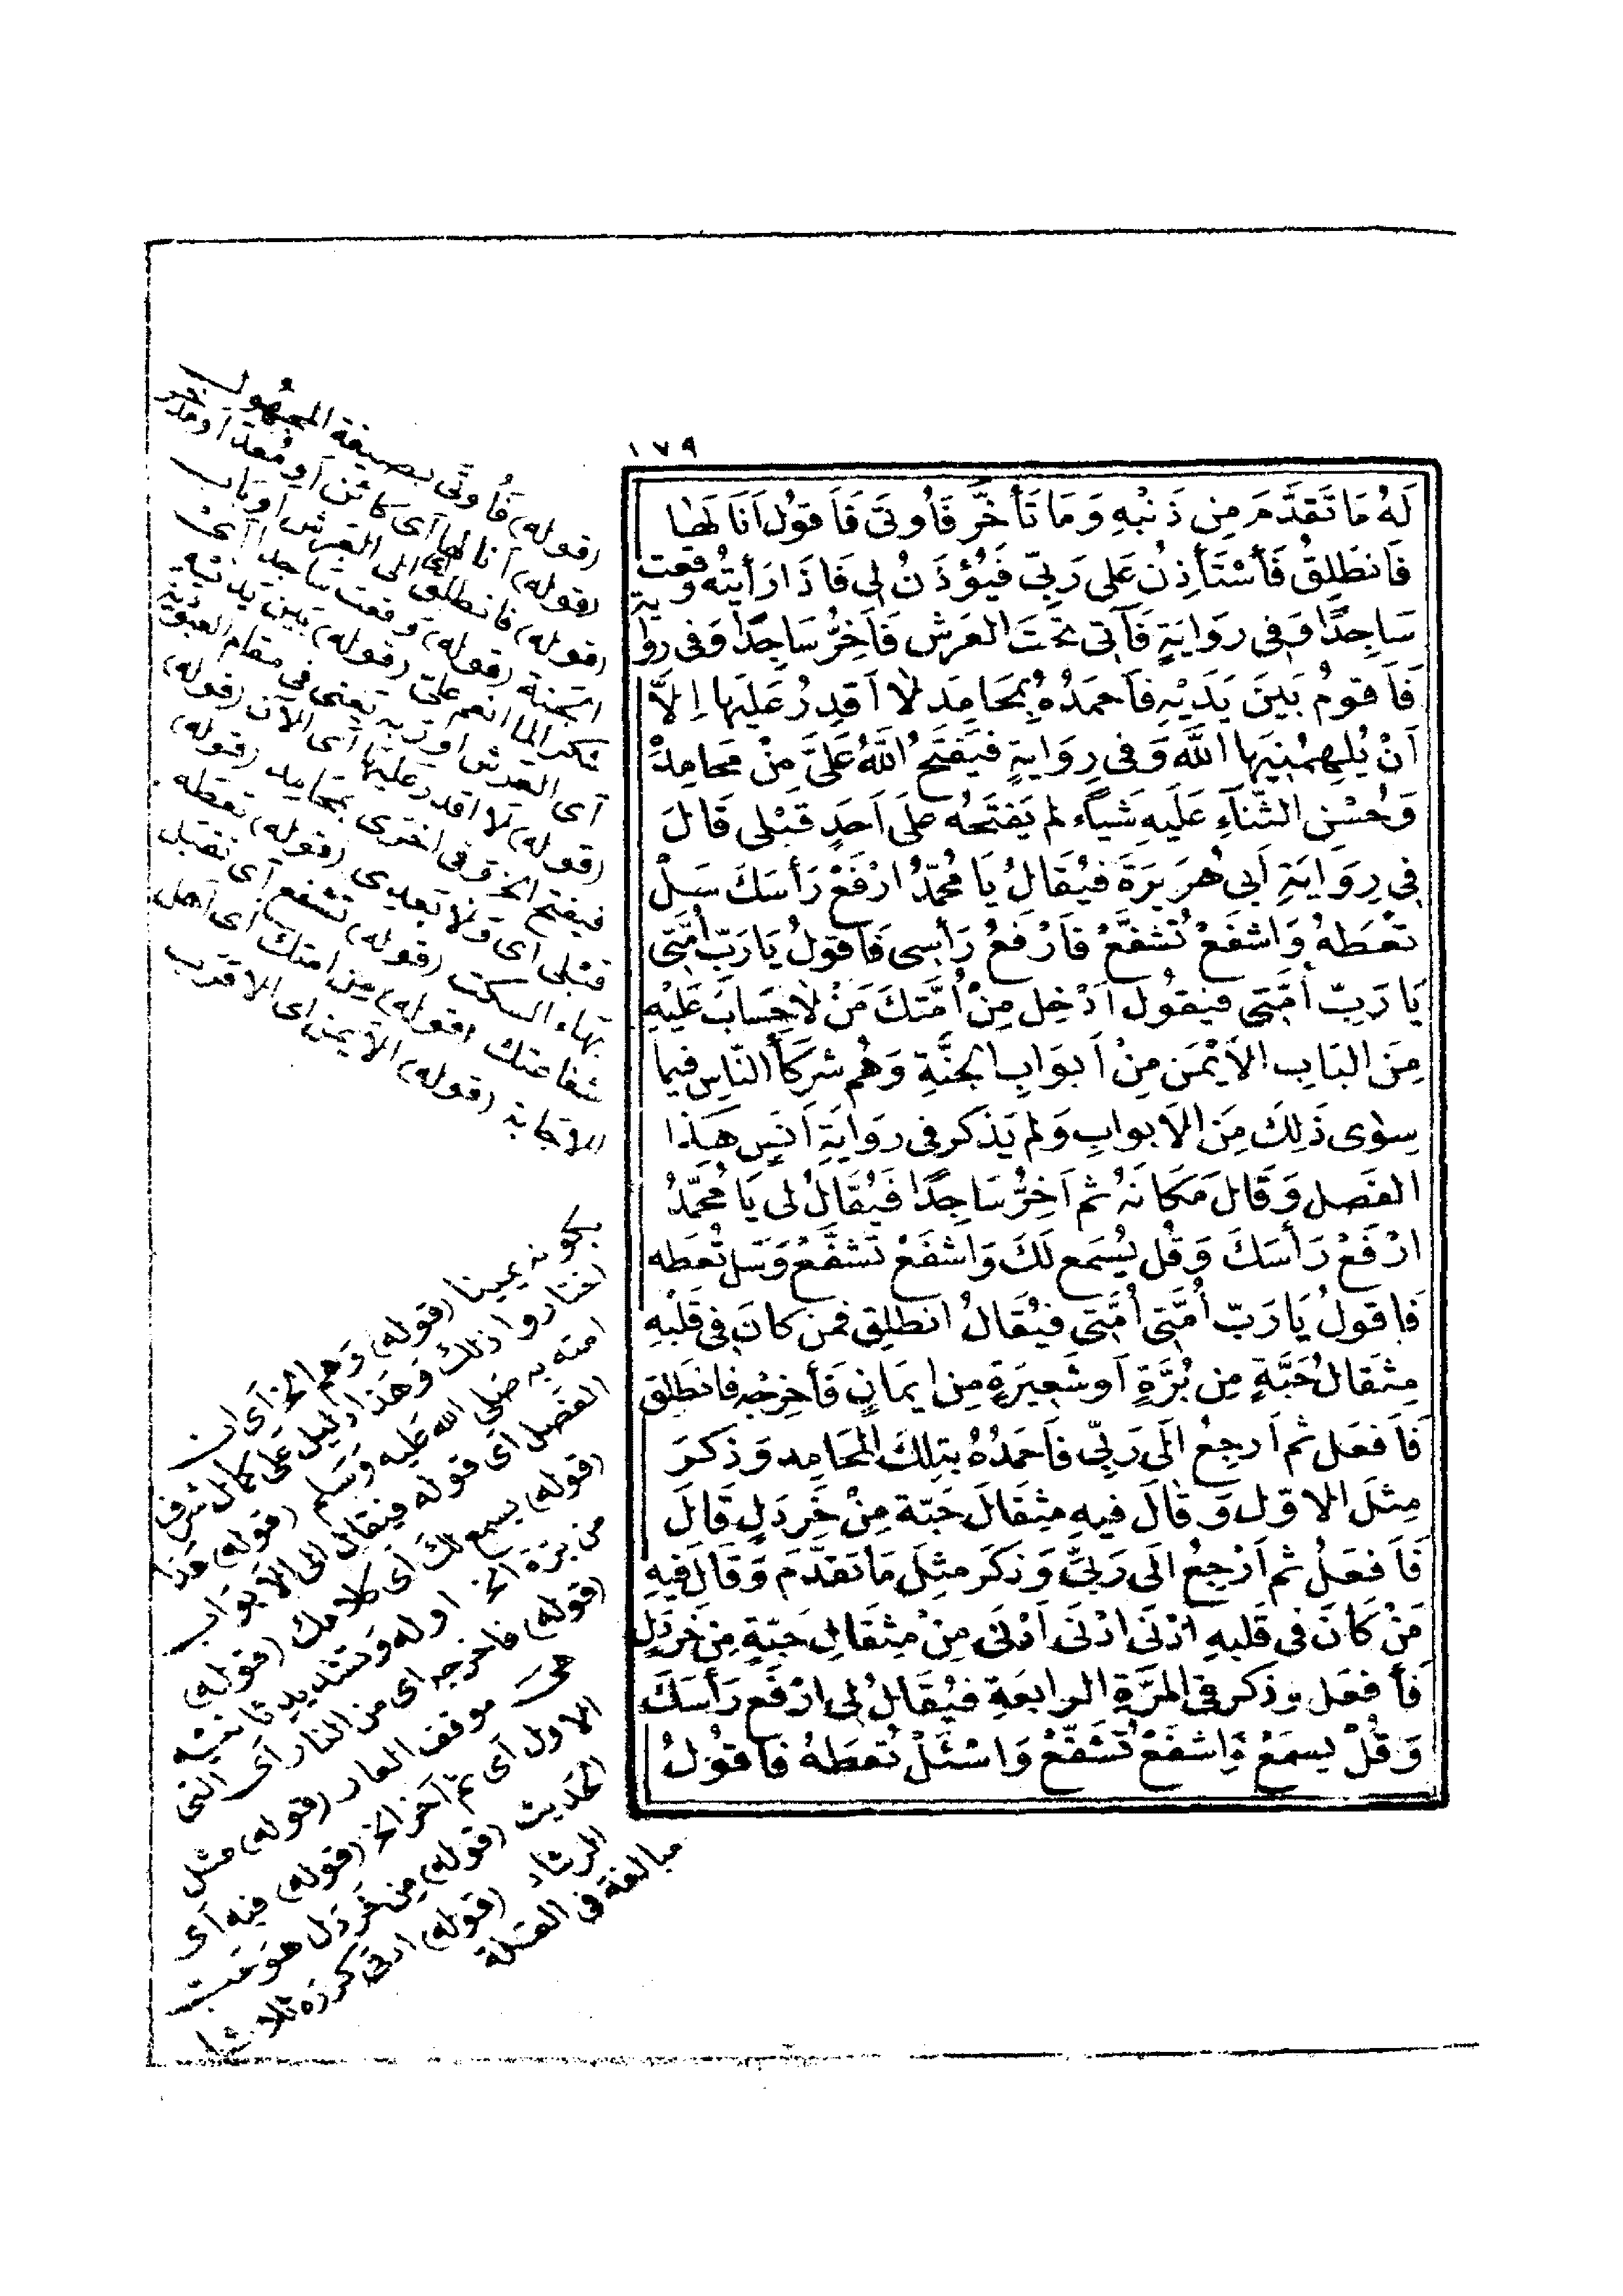 ١٧٩
لَهُ مَا تَقَدَّمَ مِن ذَنْبِهِ وَمَا تَأَخَّرَ فَاُوتَى فَاَقولُ اَنَا لَهَا
فَانطَلِقُ فَأَسْتَأذِنُ عَلى رَبّى فَيُؤذَنُ لِى فَاذَا رَأيتُه وقعت
سَاجِدًا وَفِى رِوَايَةٍ فَآتِى تَحْتَ العَرشِ فَاَخِرُّ سَاجِدًا وَفى رواية
فَاَقومُ بَينَ يَدَيْهِ فَاَحمَدُهُ بِمَحَامِدَ لا اَقدِرُ عَلَيهَا اِلاَّ
اَنْ يُلهِمُنِيهَا اللهُ وَفى رِوَايَةٍ فيَفتَحُ اللهُ عَلَىَّ مِنْ مَحَامِدِهْ
وَحُسْنِ الثَّنَآءِ عَلَيهِ شَيأً لم يَفتَحْهُ عَلَى اَحَدٍ قَبْلى قَالَ
فى رِوَايَةِ اَبى هُرَيرَةَ فيُقَالُ يَا مُحَمَّدُ ارْفَعْ رَأسَكَ سَلْ
تُعْطَهْ وَاشفَعْ تُشَفَّعْ فَاَرْفَعُ رَأسِى فَاقولُ يَارَبّ اُمَّتِى
يَا رَبِّ اُمَّتِى فيَقولُ اَدْخِل مِنْ اُمَّتِكَ مَنْ لاحِسَابَ عَلَيْهِ
مِنَ البَابِ الاَيْمَنِ مِنْ اَبوَابِ الجَنَّةِ وَهُم شُرَكَأُ النَّاسِ فيمَا
سِوٰى ذَلِكَ مِنَ الاَبوابِ وَلم يَذكر فى رِوَايَةِ اَنَسٍ هَذا
الفَصل وَقَالَ مَكَانَهُ ثم اَخِرُّ سَاجِدًا فَيُقَالُ لى يَا مُحَمَّدُ
ارْفَعْ رَأسَكَ وَقُل يُسمَع لَكَ وَاشْفَعْ تُشَفَّعْ وَسَل تُعطَه
فَاقولُ يَارَبّ اُمَّتى اُمَّتى فيُقَالُ انطلِق فمن كانَ فى قَلْبِهِ
مِثقَالُ حَبَّةٍ مِن بُرَّةٍ اَو شَعِيرَةٍ مِن اِيمَانٍ فَأخرِجْه فانطَلِق
فَاَفعَل ثم اَرجِعُ اِلَى رَبِّى فَاَحمَدُهُ بتِلكَ المَحَامِد وَذكَرَ
مِثلَ الاوّل وَقالَ فيهِ مِثقَالَ حَبّة مِنْ خَردَلٍ قَالَ
فَاَفعَلُ ثم اَرْجِعُ الَى رَبِّى وَذَكَرَ مثلَ مَا تقَدَّمَ وَقَالَ فِيهِ
مَنْ كَانَ فى قَلبِهِ اَدْنَى اَدْنَى اَدْنَى مِنْ مِثقَالِ حَبّةٍ مِن خَردَلٍ
فَأفعَل وذكر فى المَرَّةِ الرابعَةِ فيُقَالُ لى ارْفَع رَأسَكَ
وَقُلْ يسمَعْ وَاشفَعْ تُشَفَّعْ وَاسْئَلْ تُعطَهْ فَاقُولُ
(قوله) فَاُوتَى بصيغة المجهول
(قوله) اَنا لها اَى كائن اَو مُعَدّ اَو
(قوله) فانطلق اَى الى العَرش اَو بَاب
الجَنة (قوله) وَقعت سَاجدا اَى
شكرا لما انعم علىّ (قوله) بَين يديه
اَى العَرش اَو رَبه يَعنى فى مقام العبودية
(قوله) لاَ اقدر عليها اَى الآن (قوله)
فيفتح الخ وَفى اخرى بمحامد (قوله)
قبلى اَى وَلا بَعدى (قوله) تعطه
بهاء السكت (قوله) تشفع اَى تقبل
شفاعتك (قوله) من امتك اَى اَهل
الاجابة (قوله) الاَيمن اى الاقرَب
بكونه يمينا (قوله) وَهم الخ اَى ان
اختاروا ذلك وَهَذا دليل عَلى كمال شرف
امته به صَلى الله عَليه وَسَلم (قوله) هَذا
الفَصل اى قوله فيقال الى الاَبوَاب
(قوله) يسمع لك اى كلامك (قوله)
من بُرة الخ اوله وَتشديد ثانيه
(قوله) فاخرجه اى من النار اَى التى
هى موقف العار (قوله) مثل
الاول اَى ثم اَخر الخ (قوله) فيه اَى
الحَديث (قوله) مِن خَردَل هوَ حَب
الرشاد (قوله) ادنى كررَه ثلاثا
مبالغة فى القلة